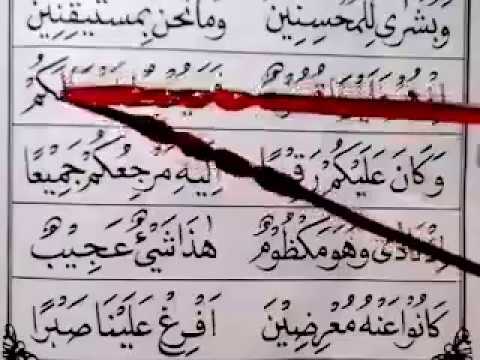 وَبُشْرٰى لِلْمُحْسِنِيْنَ وَمَانَحْنُ بِمُسْتَيْقِنِيْنَ
لَكُمْ
وَكَانَ عَلَيْكُمْ رَقِيْبًا اِلَيْهِ مَرْجِعُكُمْ جَمِيْعًا
اِذْنَادٰى وَهُوَ مَكْظُوْمٌ هٰذَا شَيْءٌ عَجِيْبٌ
كَانُوْا عَنْهُ مُعْرِضِيْنَ اَفْرِغْ عَلَيْنَا صَبْرًا